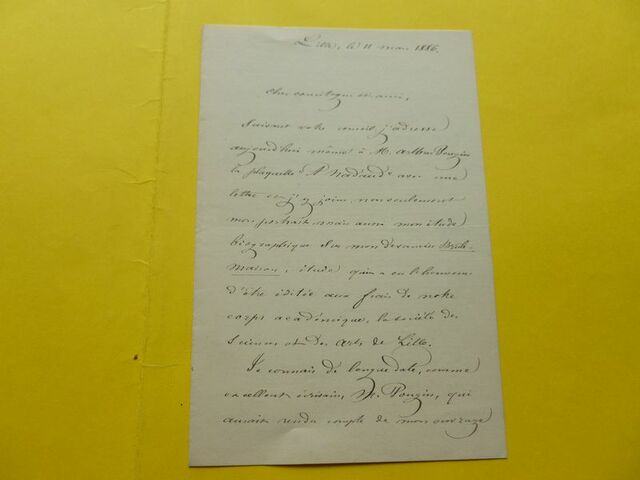 Lille, le 11 mai 1886.
Cher compatriote et ami,
Suivant votre conseil j'adresse
aujourd'hui même à M. Arthur Pougin
la plaquette "A Nadaud" avec une
lettre où j'y joins, non seulement
mon portrait mais aussi mon étude
biographique sur mon devancier Brûle-
Maison, étude qui a eu l'honneur
d'être éditée aux frais de notre
corps académique, la société des
Sciences et des Arts de Lille.
Je connais de longue date, comme
excellent écrivain, M. Pougin, qui
aurait rendu compte de mon ouvrage